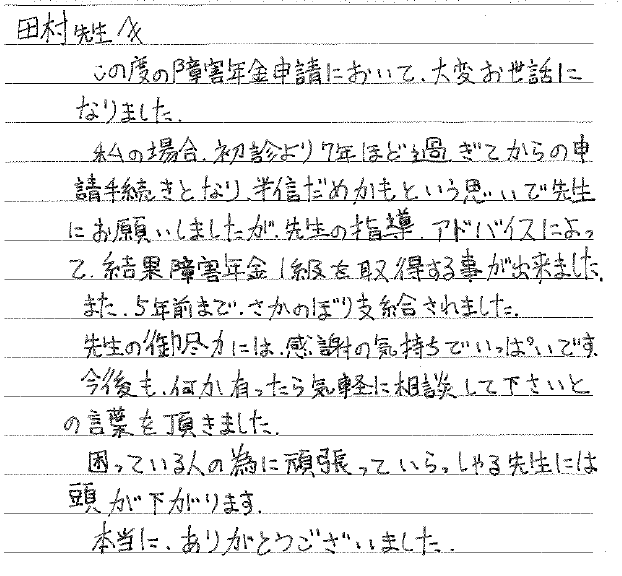 田村先生へ
この度の障害年金申請において、大変お世話に
なりました。
私の場合、初診より7年ほど過ぎてからの申
請手続きとなり、半信だめかもという思いで先生
にお願いしましたが、先生の指導、アドバイスによっ
て、結果障害年金1級を取得する事が出来ました。
また、5年前まで、さかのぼり支給されました。
先生の御尽力には、感謝の気持ちでいっぱいです。
今後も、何か有ったら気軽に相談して下さいと
の言葉を頂きました。
困っている人の為に頑張っていらっしゃる先生には
頭が下がります。
本当に、ありがとうございました。